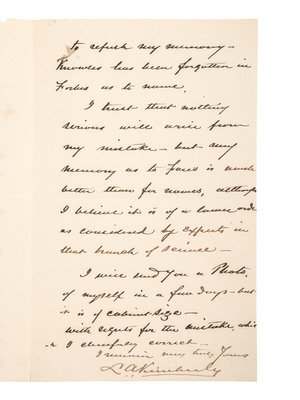 to refresh my memory —
Knowles has been forgotten in
Forbes as to name.
I trust that nothing
serious will arise from
my mistake — but my
memory as to faces is much
better than for names, although
I believe it is of a lower order
as considered by experts in
that branch of science —
I will send you a Photo,
of myself in a few days — but
it is of cabinet size —
With regrets for the mistake, which
I cheerfully correct —
I remain very truly Yours
L.A. Kimberly